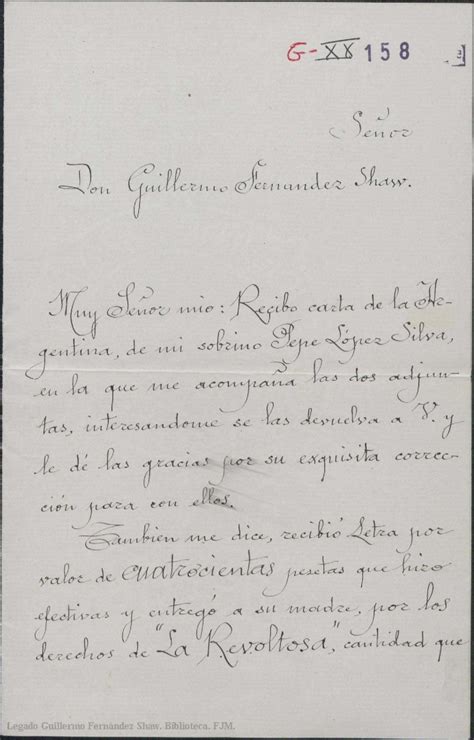 G-XX 158
Señor
Don Guillermo Fernandez Shaw.
Muy Señor mio: Recibo carta de la Ar-
gentina, de mi sobrino Pepe López Silva,
en la que me acompaña las dos adjun-
tas, interesandome se las devuelva a V. y
le dé las gracias por su exquisita correc-
ción para con ellos.
Tambien me dice, recibió Letra por
valor de cuatrocientas pesetas que hizo
efectivas y entregó a su madre, por los
derechos de "La Revoltosa", cantidad que
Legado Guillermo Fernández Shaw. Biblioteca. FJM.